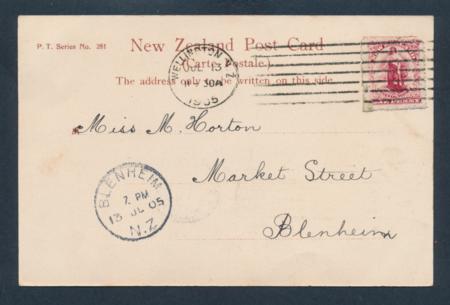 P. T. Series No. 281
New Zealand Post Card
(Carte Postale.)
The address only to be written on this side.
WELLINGTON N.Z
JUL 13
30PM
1905
ONE PENNY
Miss M. Horton
Market Street
Blenheim
BLENHEIM
7. PM
13 JL 05
N.Z